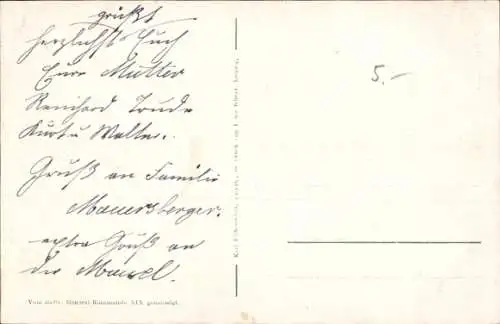 grüßt
herzlichst Euch
Eure Mutter
Reinhard Trude
Kurt u Walter.
Gruß an Familie
Mauersberger.
extra Gruß an
die Mausel.
5.-
Vom stellv. General-Kommando XIX. genehmigt.